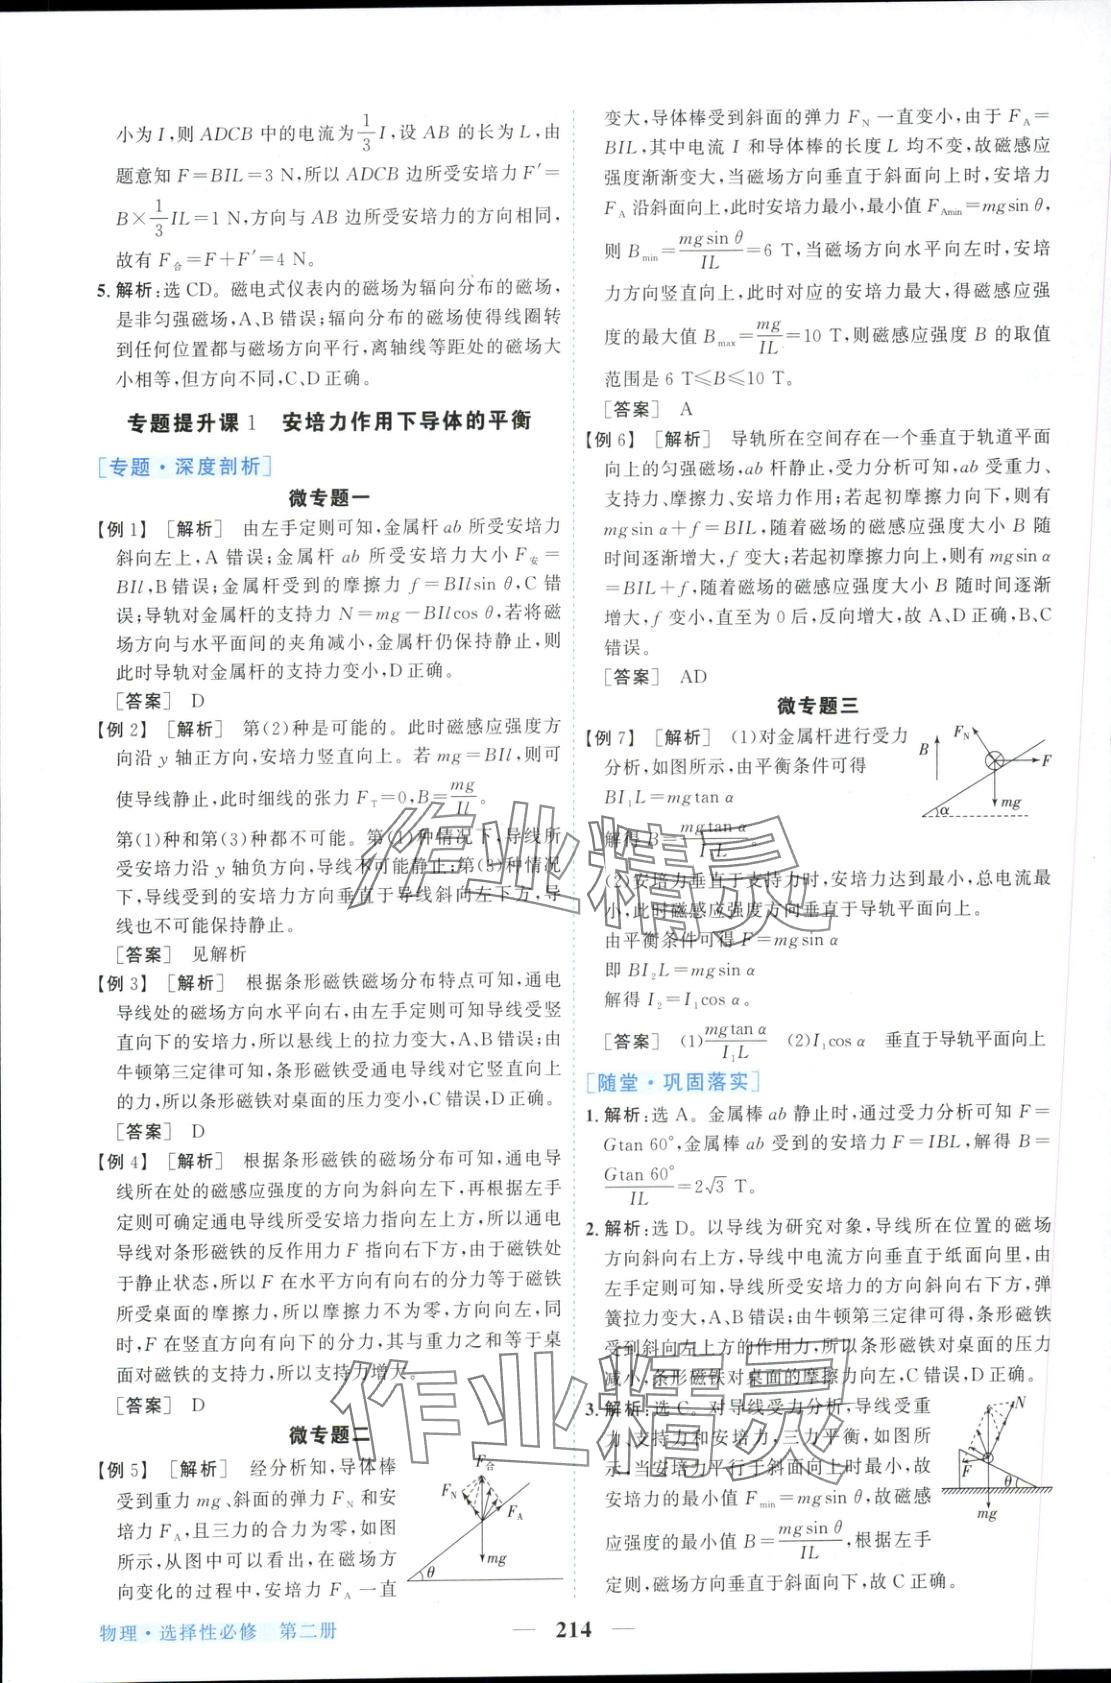 小为 I,则 ADCB 中的电流为 1/3 I,设 AB 的长为 L,由
题意知 F=BIL=3 N,所以 ADCB 边所受安培力 F′=
B×1/3 IL=1 N,方向与 AB 边所受安培力的方向相同,
故有 F合=F+F′=4 N。
5. 解析:选 CD。磁电式仪表内的磁场为辐向分布的磁场,
是非匀强磁场,A、B 错误;辐向分布的磁场使得线圈转
到任何位置都与磁场方向平行,离轴线等距处的磁场大
小相等,但方向不同,C、D 正确。
专题提升课 1 安培力作用下导体的平衡
[专题·深度剖析]
微专题一
【例 1】 [解析] 由左手定则可知,金属杆 ab 所受安培力
斜向左上,A 错误;金属杆 ab 所受安培力大小 F安=
BIl,B 错误;金属杆受到的摩擦力 f=BIlsin θ,C 错
误;导轨对金属杆的支持力 N=mg-BIlcos θ,若将磁
场方向与水平面间的夹角减小,金属杆仍保持静止,则
此时导轨对金属杆的支持力变小,D 正确。
[答案] D
【例 2】 [解析] 第(2)种是可能的。此时磁感应强度方
向沿 y 轴正方向,安培力竖直向上。若 mg=BIl,则可
使导线静止,此时细线的张力 FT=0,B=mg/IL。
第(1)种和第(3)种都不可能。第(1)种情况下,导线所
受安培力沿 y 轴负方向,导线不可能静止;第(3)种情况
下,导线受到的安培力方向垂直于导线斜向左下方,导
线也不可能保持静止。
[答案] 见解析
【例 3】 [解析] 根据条形磁铁磁场分布特点可知,通电
导线处的磁场方向水平向右,由左手定则可知导线受竖
直向下的安培力,所以悬线上的拉力变大,A、B 错误;由
牛顿第三定律可知,条形磁铁受通电导线对它竖直向上
的力,所以条形磁铁对桌面的压力变小,C 错误,D 正确。
[答案] D
【例 4】 [解析] 根据条形磁铁的磁场分布可知,通电导
线所在处的磁感应强度的方向为斜向左下,再根据左手
定则可确定通电导线所受安培力指向左上方,所以通电
导线对条形磁铁的反作用力 F 指向右下方,由于磁铁处
于静止状态,所以 F 在水平方向有向右的分力等于磁铁
所受桌面的摩擦力,所以摩擦力不为零,方向向左,同
时,F 在竖直方向有向下的分力,其与重力之和等于桌
面对磁铁的支持力,所以支持力增大。
[答案] D
微专题二
【例 5】 [解析] 经分析知,导体棒
受到重力 mg、斜面的弹力 FN 和安
培力 FA,且三力的合力为零,如图
所示,从图中可以看出,在磁场方
向变化的过程中,安培力 FA 一直
F合
FN
FA
mg
θ
变大,导体棒受到斜面的弹力 FN 一直变小,由于 FA=
BIL,其中电流 I 和导体棒的长度 L 均不变,故磁感应
强度渐渐变大,当磁场方向垂直于斜面向上时,安培力
FA 沿斜面向上,此时安培力最小,最小值 FAmin=mgsin θ,
则 Bmin=mgsin θ/IL=6 T,当磁场方向水平向左时,安培
力方向竖直向上,此时对应的安培力最大,得磁感应强
度的最大值 Bmax=mg/IL=10 T,则磁感应强度 B 的取值
范围是 6 T≤B≤10 T。
[答案] A
【例 6】 [解析] 导轨所在空间存在一个垂直于轨道平面
向上的匀强磁场,ab 杆静止,受力分析可知,ab 受重力、
支持力、摩擦力、安培力作用;若起初摩擦力向下,则有
mgsin α+f=BIL,随着磁场的磁感应强度大小 B 随
时间逐渐增大,f 变大;若起初摩擦力向上,则有 mgsin α
=BIL+f,随着磁场的磁感应强度大小 B 随时间逐渐
增大,f 变小,直至为 0 后,反向增大,故 A、D 正确,B、C
错误。
[答案] AD
微专题三
【例 7】 [解析] (1)对金属杆进行受力
分析,如图所示,由平衡条件可得
BI1L=mgtan α
解得 B=mgtan α/I1L。
B
FN
F
mg
α
(2)安培力垂直于支持力时,安培力达到最小,总电流最
小,此时磁感应强度方向垂直于导轨平面向上。
由平衡条件可得 F=mgsin α
即 BI2L=mgsin α
解得 I2=I1cos α。
[答案] (1)mgtan α/I1L (2)I1cos α 垂直于导轨平面向上
[随堂·巩固落实]
1. 解析:选 A。金属棒 ab 静止时,通过受力分析可知 F=
Gtan 60°,金属棒 ab 受到的安培力 F=IBL,解得 B=
Gtan 60°/IL=2√3 T。
2. 解析:选 D。以导线为研究对象,导线所在位置的磁场
方向斜向右上方,导线中电流方向垂直于纸面向里,由
左手定则可知,导线所受安培力的方向斜向右下方,弹
簧拉力变大,A、B 错误;由牛顿第三定律可得,条形磁铁
受到斜向左上方的作用力,所以条形磁铁对桌面的压力
减小,条形磁铁对桌面的摩擦力向左,C 错误,D 正确。
3. 解析:选 C。对导线受力分析,导线受重
力、支持力和安培力,三力平衡,如图所
示,当安培力平行于斜面向上时最小,故
安培力的最小值 Fmin=mgsin θ,故磁感
应强度的最小值 B=mgsin θ/IL,根据左手
定则,磁场方向垂直于斜面向下,故 C 正确。
N
F
θ
mg
作业精灵
作业精灵
物理·选择性必修 第二册
214